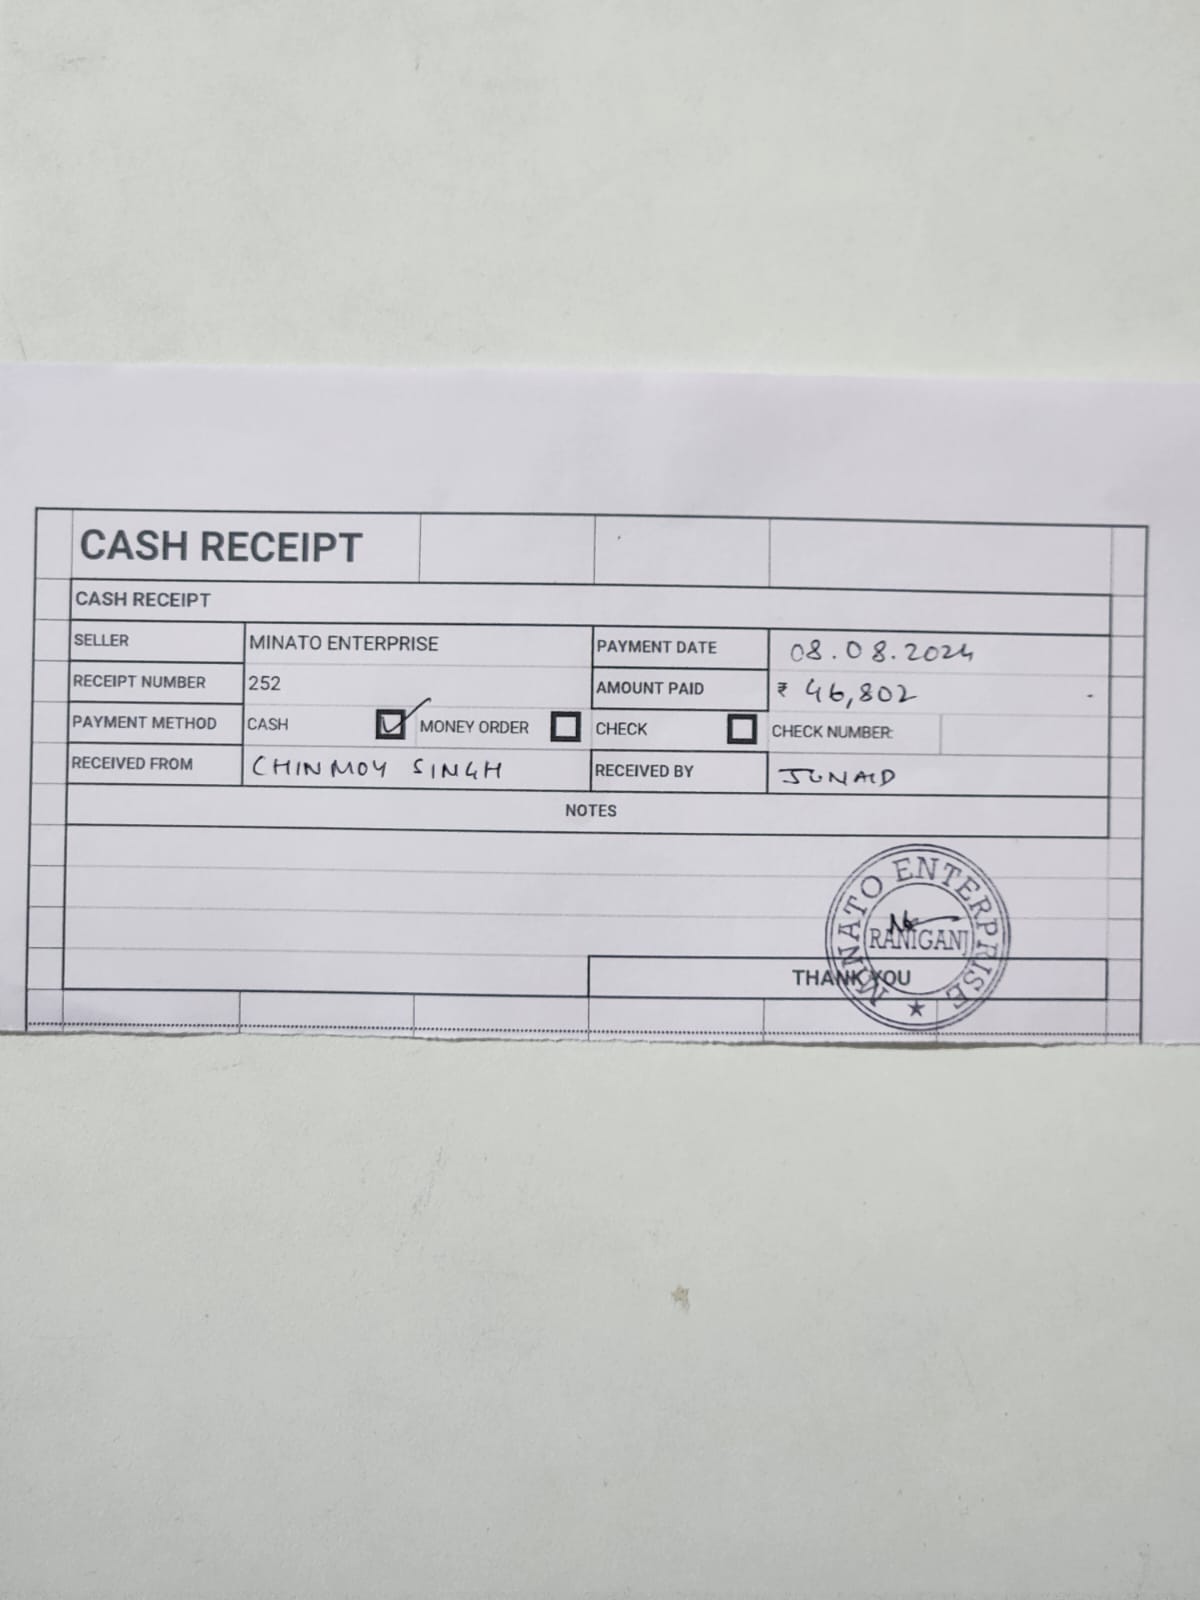 CASH RECEIPT
CASH RECEIPT
SELLER MINATO ENTERPRISE PAYMENT DATE 08.08.2024
RECEIPT NUMBER 252 AMOUNT PAID ₹ 46,802
PAYMENT METHOD CASH MONEY ORDER CHECK CHECK NUMBER:
RECEIVED FROM CHINMOY SINGH RECEIVED BY JUNAID
NOTES
MINATO ENTERPRISE
RANIGANJ
THANK YOU